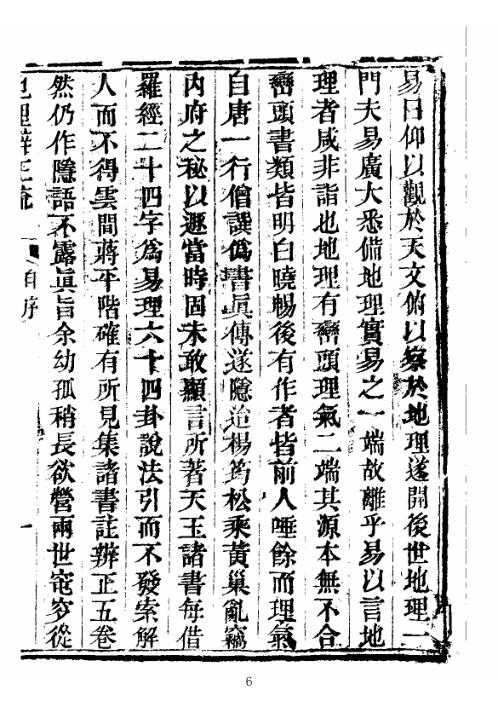 易曰仰以觀於天文俯以察於地理遂開後世地理一
門夫易廣大悉備地理實易之一端故離乎易以言地
理者咸非詣也地理有巒頭理氣二端其源本無不合
巒頭書類皆明白曉暢後有作者皆前人唾餘而理氣
自唐一行僧譔僞書眞傳遂隱迨楊筠松乘黃巢亂竊
內府之秘以遯當時固未敢顯言所著天玉諸書每借
羅經二十四字爲易理六十四卦說法引而不發索解
人而不得雲間蔣平階確有所見集諸書註辨正五卷
然仍作隱語不露眞旨余幼孤稍長欲營兩世窀穸從
地理辯正疏 自序 一
6